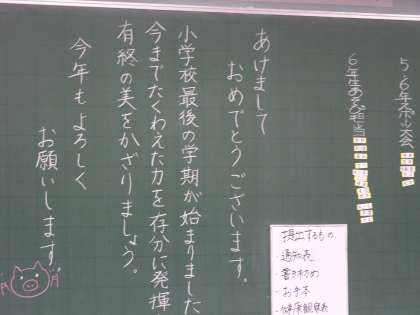 あけまして
おめでとうございます。
小学校最後の学期が始まりました
今までたくわえた力を存分に発揮
有終の美をかざりましょう。
今年もよろしく
お願いします
提出するもの
・通知表
・書き初め
・お手本
・健康観察表